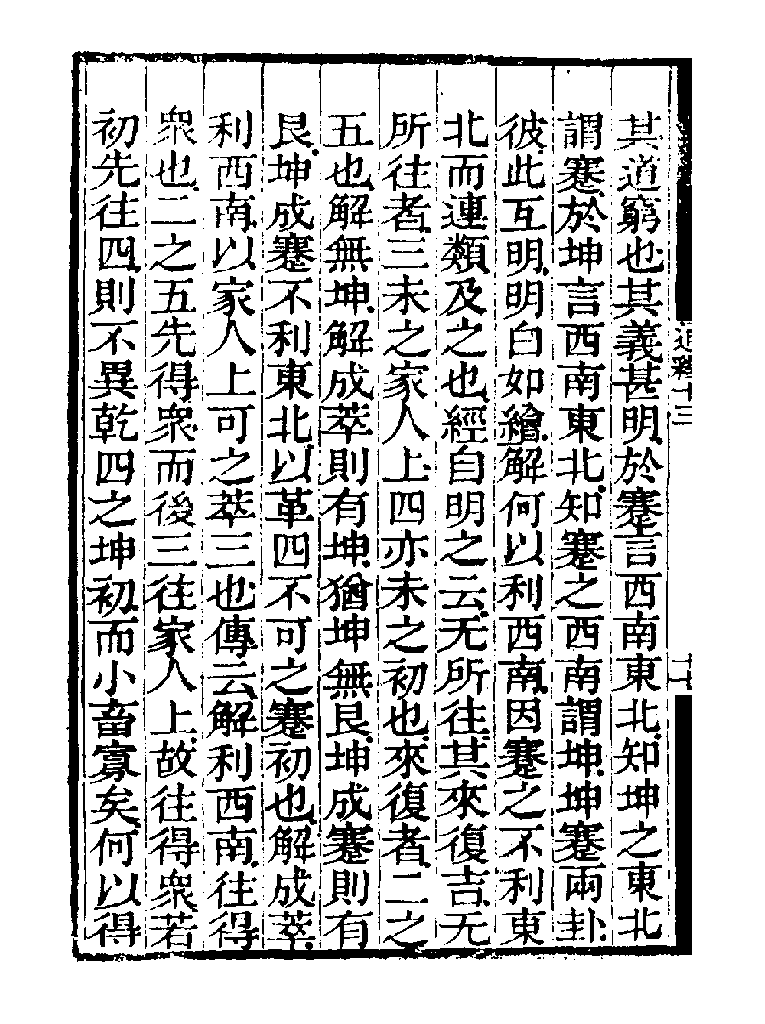 其道窮也其義甚明於蹇言西南東北知坤之東北
謂蹇於坤言西南東北知蹇之西南謂坤坤蹇兩卦
彼此互明明白如繪解何以利西南因蹇之不利東
北而連類及之也經自明之云无所往其來復吉无
所往者三未之家人上四亦未之初也來復者二之
五也解無坤解成萃則有坤猶坤無艮坤成蹇則有
艮坤成蹇不利東北以革四不可之蹇初也解成萃
利西南以家人上可之萃三也傳云解利西南往得
衆也二之五先得衆而後三往家人上故往得衆若
初先往四則不異乾四之坤初而小畜寡矣何以得
通釋十三